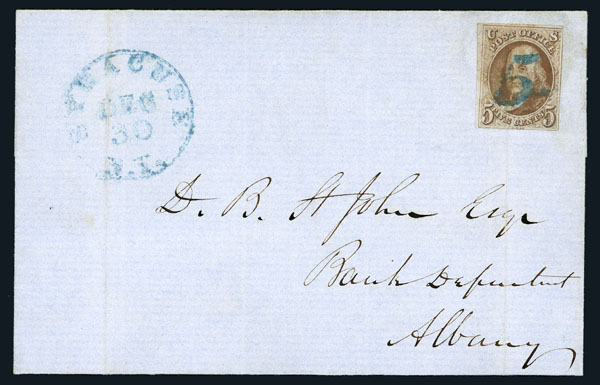 SYRACUSE
DEC
30
N.Y.
U S
POST OFFICE
5
5 FIVE CENTS 5
D. B. St John Esqr
Bank Department
Albany